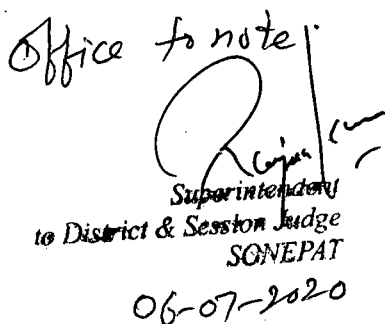 Office to note
Superintendent
to District & Session Judge
SONEPAT
06-07-2020